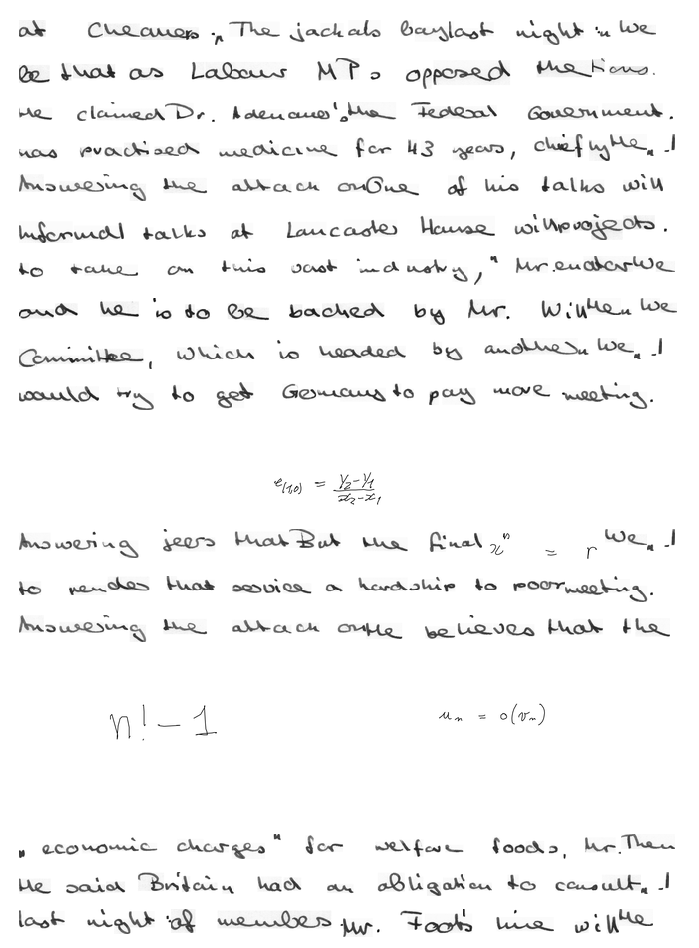 at Chequers. „ The jackals bay last night :„ We
be that as Labour MPs opposed the tions.
He claimed Dr. Adenauer's the Federal Government.
has practised medicine for 43 years, chiefly He „ I
Answering the attack on One of his talks will
Informal talks at Lancaster House will projects.
to take on this vast industry," Mr. endor We
and he is to be backed by Mr. Will He „ We
Committee, which is headed by another „ We „ I
would try to get Germans to pay more meeting.
e_{(1,0)} = \frac{y_2-y_1}{x_2-x_1}
Answering jeers that But the final x^n = r We „ I
to render that service a hardship to poor meeting.
Answering the attack on He believes that the
n! - 1 u_n = o(v_n)
„ economic charges" for welfare foods, Mr. Then
He said Britain had an obligation to consult „ I
last night of member Mr. Foot's line will He